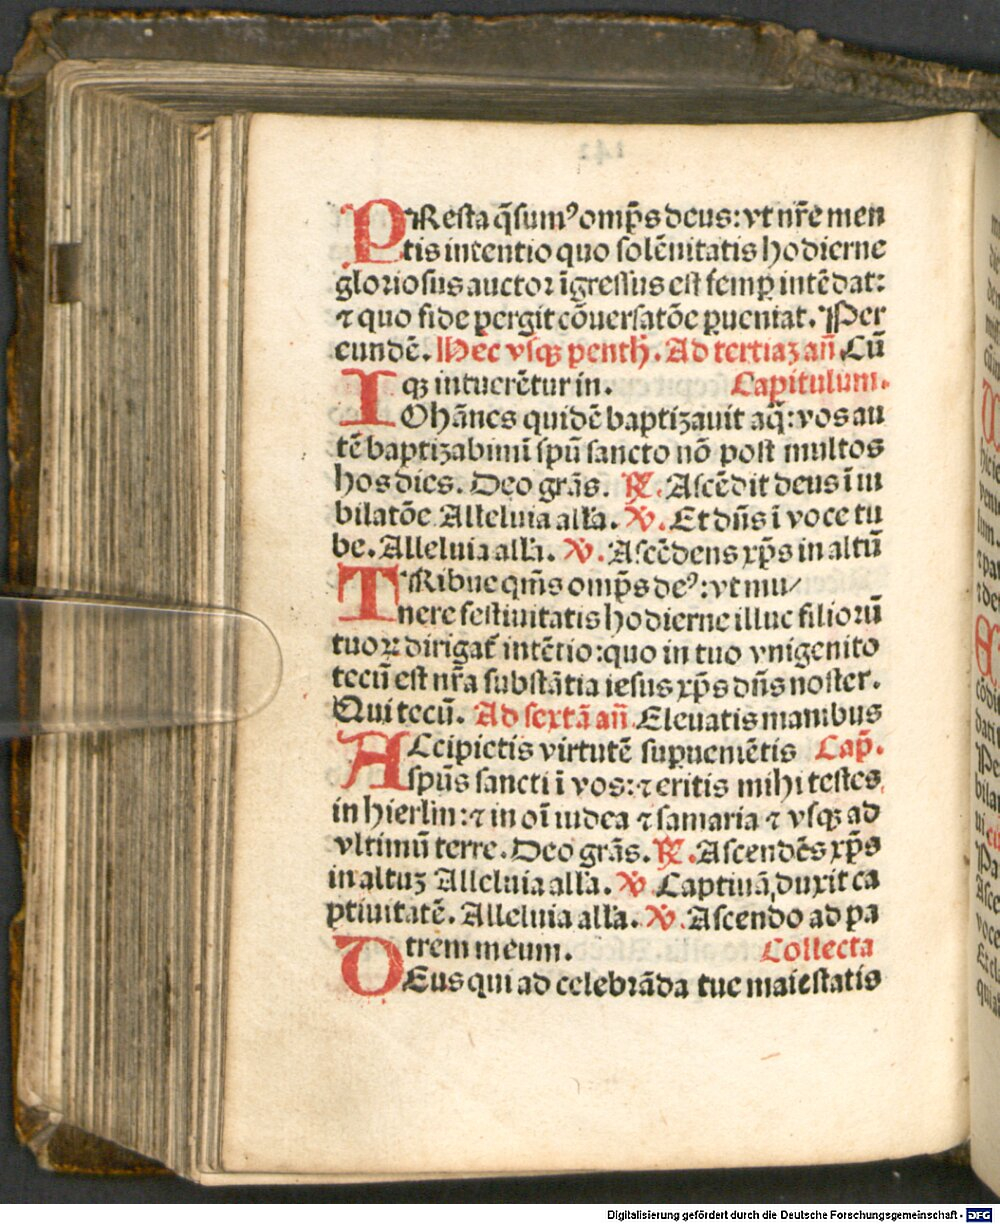 PResta q̄sumꝰ omp̄s deus: vt nr̄e men
tis intentio quo solēnitatis hodierne
gloriosus auctor īgressus est semꝑ intēdat:
⁊ quo fide pergit cōuersatōe ꝑueniat. Per
eundē. Hec vsqꝫ penth̄. Ad tertiaꝫ an̄. Cū
qꝫ intuerētur in. Capitulum.
IOhānes quidē baptizauit aq̄: vos au
tē baptizabimī spū sancto nō post multos
hos dies. Deo grās. ℟. Ascēdit deus ī iu
bilatōe Alleluia all'a. ℣. Et dn̄s ī voce tu
be. Alleluia all'a. ℣. Ascēdens xp̄s in altū
TRibue qm̄s omp̄s deꝰ: vt mu/
nere festiuitatis hodierne illuc filiorū
tuoꝝ dirigat᷑ intētio: quo in tuo vnigenito
tecū est nr̄a substātia iesus xp̄s dn̄s noster.
Qui tecū. Ad sextā an̄. Eleuatis manibus
ACcipietis virtutē suꝑueniētis Cap̄.
spūs sancti ī vos: ⁊ eritis mihi testes
in hierlm̄: ⁊ in oī iudea ⁊ samaria ⁊ vsqꝫ ad
vltimū terre. Deo grās. ℟. Ascendēs xp̄s
in altuꝫ Alleluia all'a. ℣. Captiuā duxit ca
ptiuitatē. Alleluia all'a. ℣. Ascendo ad pa
trem meum. Collecta
DEus qui ad celebrāda tue maiestatis
Digitalisierung gefördert durch die Deutsche Forschungsgemeinschaft - DFG